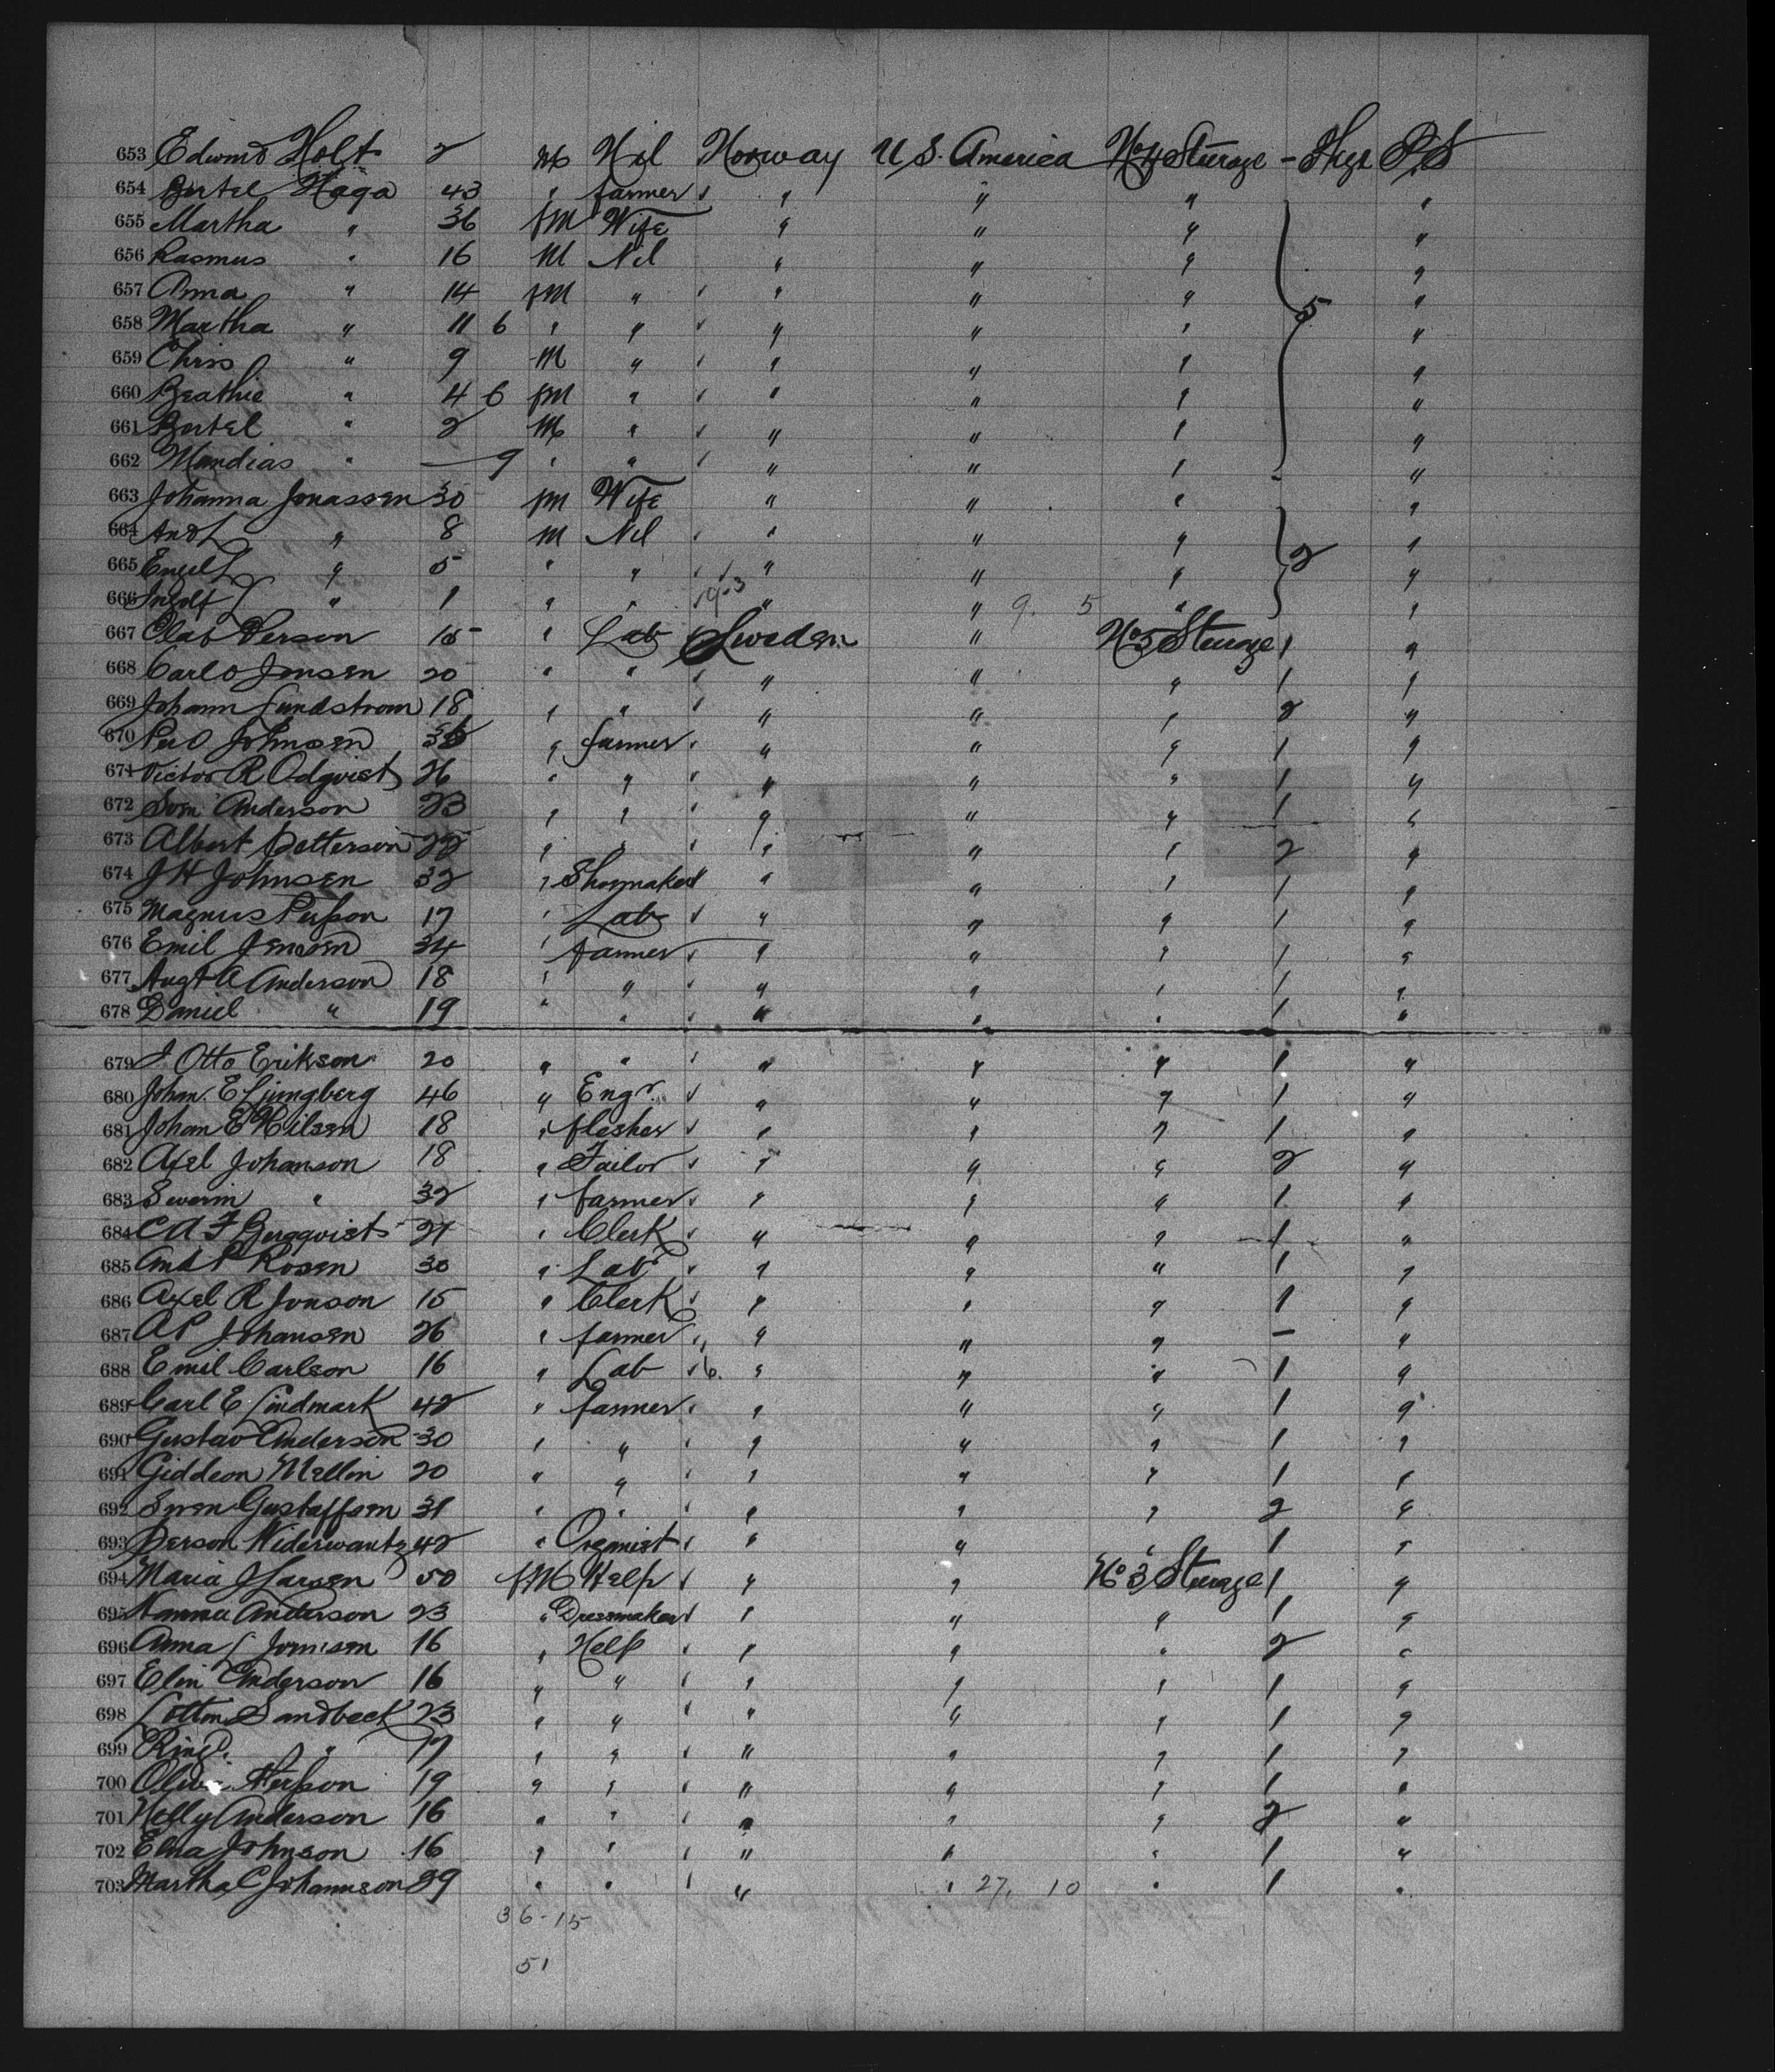 653 Edwind Holt 2 M Nil Norway U S. America No 4 Sturage - Thgs P.S
654 Bertel Haga 43 " farmer " " " "
655 Martha " 36 fM Wife " " " "
656 Rasmus " 16 M Nil " " " "
657 Anna " 14 fM " " " " "
658 Martha " 11 6 " " " " " 5 "
659 Chris " 9 M " " " " "
660 Beathie " 4 6 fM " " " " "
661 Bertel " 2 M " " " " "
662 Mandias " — 9 " " " " " "
663 Johanna Jonassen 30 fM Wife " " " "
664 And L " 8 M Nil " " " "
665 Engel L " 5 " " " " " 2 "
666 Ingolf J " 1 " " 19.3 " " 9. 5 " "
667 Olaf Person 15 " Lab Sweden " No 5 Sturage 1 "
668 Carl O Jonsen 20 " " " " " 1 "
669 Johann Lundstrom 18 " " " " " 2 "
670 Per O Johnsen " farmer " " " 1 "
671 Victor R Odqvist 26 " " " " " 1 "
672 Sven Anderson 23 " " " " " 1 "
673 Albert Petterson 22 " " " " " 2 "
674 J H Johnsen 32 " Shoemaker " " " 1 "
675 Magnus Person 17 " Lab " " " 1 "
676 Emil Jensen 34 " farmer " " " 1 "
677 Augt A Anderson 18 " " " " " 1 "
678 Daniel " 19 " " " " " 1 "
679 J. Otto Erikson 20 " " " " " 1 "
680 Johan. E Ljungberg 46 " Engr. " " " 1 "
681 Johan E Nilsen 18 " flesher " " " 1 "
682 Axel Johanson 18 " Tailor " " " 2 "
683 Severin " 32 " farmer " " " 1 "
684 C A F Bergqvist 27 " Clerk " " " 1 "
685 And P Rosen 30 " Labr " " " 1 "
686 Axel R Jonson 15 " Clerk " " " 1 "
687 A P Johansen 26 " farmer " " " — "
688 Emil Carlson 16 " Lab 6. " " " 1 "
689 Carl E Lindmark 42 " farmer " " " 1 "
690 Gustav Anderson 30 " " " " " 1 "
691 Giddeon Mellin 20 " " " " " 1 "
692 Sven Gustaffsen 31 " " " " " 2 "
693 Person Widerwantz 42 " Organist " " " 1 "
694 Maria J Larsen 50 fM Help " " No 3 Sturage 1 "
695 Nanna Anderson 23 " Dressmaker " " " 1 "
696 Anna L Jonnsen 16 " Help " " " 2 "
697 Elin Anderson 16 " " " " " 1 "
698 Lotten Sandbeck 23 " " " " " 1 "
699 " 17 " " " " " 1 "
700 Olivia Person 19 " " " " " 1 "
701 Nelly Anderson 16 " " " " " 2 "
702 Elna Johnson 16 " " " " " 1 "
703 Martha C Johannson 39 " " " " 27, 10 " 1 "
36-15
51